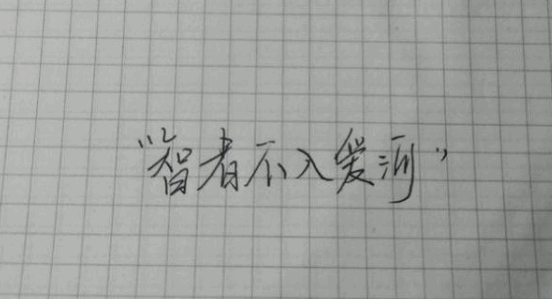 “智者不入爱河”